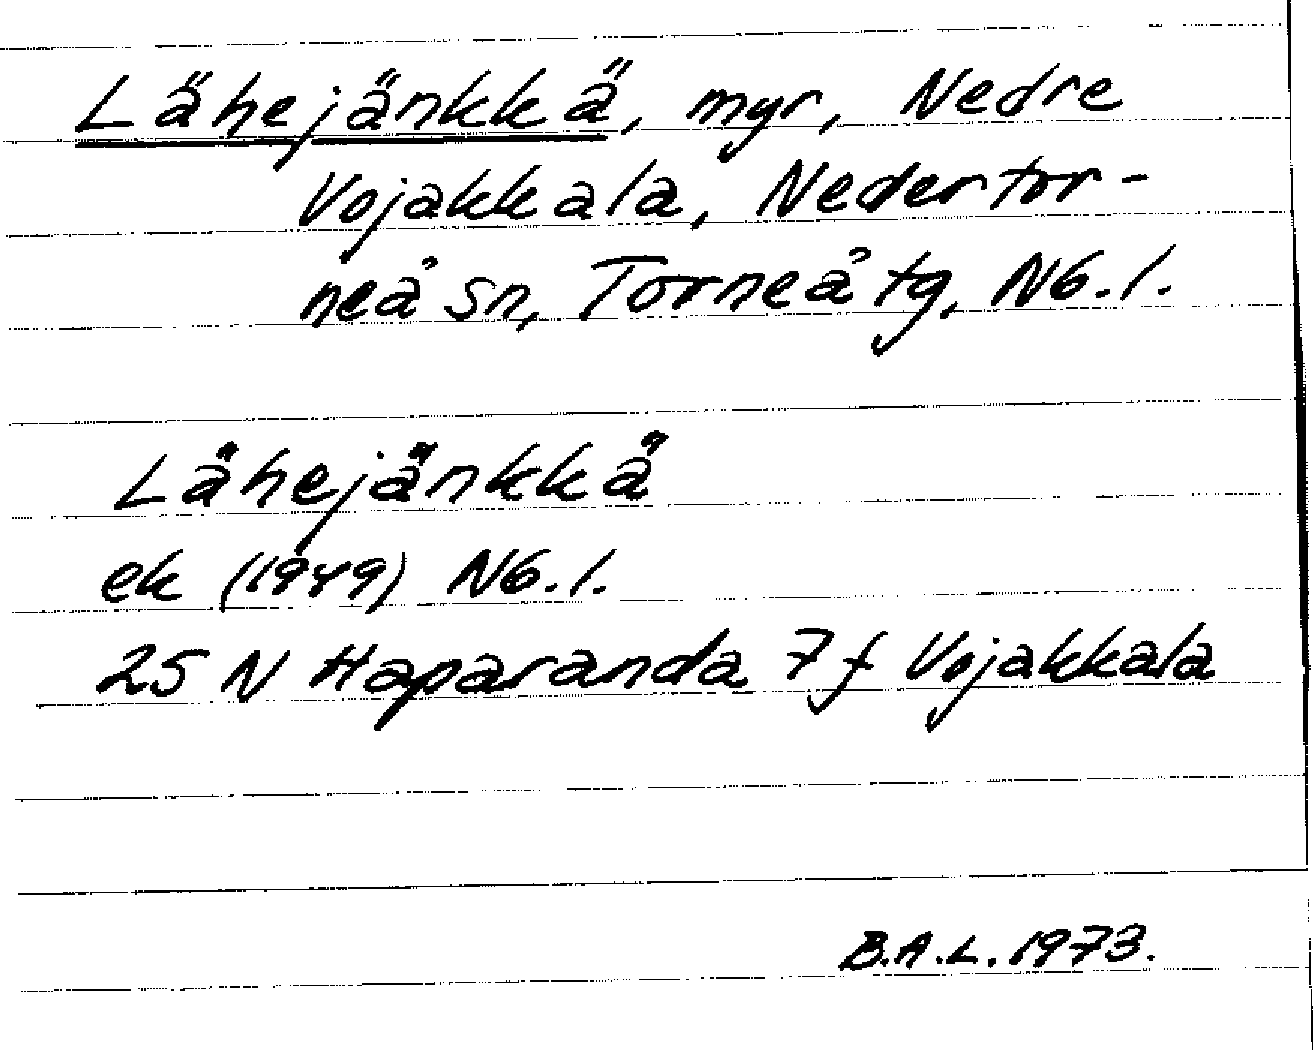 Lähejänkkä, myr, Nedre
Vojakkala, Nedertor-
neå sn, Torneå tg, N6.l.
Lähejänkkä
ek (1949) N6.l.
25 N Haparanda 7 f Vojakkala
B.A.L. 1973.